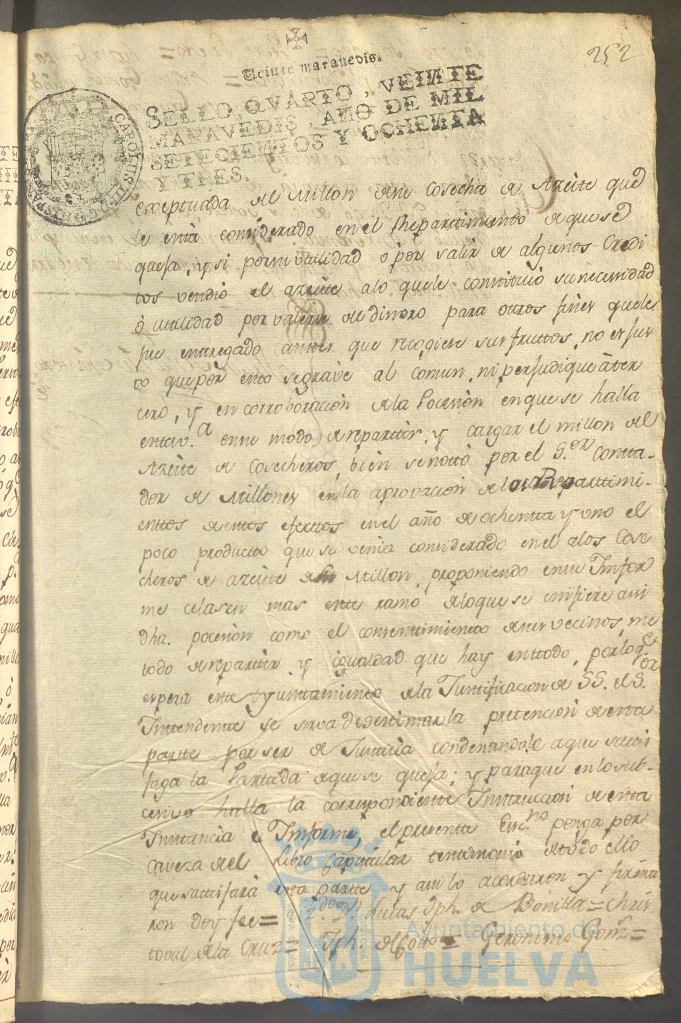 252
Veinte maravedis.
SELLO QVARTO, VEINTE
MARAVEDIS, AÑO DE MIL
SETECIENTOS Y OCHENTA
Y TRES.
exceptuada de Millon de su Cosecha de Azeite que
le esta considerado en el Repartimiento de que se
quexa, y si por su utilidad o por salir de algunos Credi
tos vendio el azeite a lo que le constituió su necesidad
ó utilidad por valerse de dinero para otros fines que le
fue entregado antes que recogiese sus fruttos, no es jus
to que por esto se grave al comun, ni perjudique a ter
cero, y en corroboracion de la Poceción en que se halla
esta v.ª en su modo de repartir, y cargar el millon del
Azeite de Cosecheros, bien se notó por el S.or Conta-
dor de Millones en la aprovacion de los Repartimi-
entos de estos efectos en el año de ochenta y uno el
poco producto que se venia considerado en el a los Cose
cheros de azeite de su Millon, proponiendo en su Infor
me celasen mas este ramo de lo que se infiere asi
dha. poceción como el consentimiento de sus vecinos, me
todo de repartir y igualdad que hay en todo, por lo q.e
espera este Ayuntamiento de la Justificacion de SS. el S.or
Intendente se sirva desestimar la pretención de esta
parte por ser de Justicia condenandole a que satis
faga la Partida de que se quexa; y para que en lo sub-
cesivo halla la correspondiente Instruccion de esta
Instancia e Informe, el presente Esc.no ponga por
Caveza del Libro Capitular testimonio de todo ello
que satisfará esta parte y asi lo acordaron y firma
ron doy fee = Lucas Jph. de Bonilla = Chris
toval de la Cruz = Jph. = Geronimo Gom.z =
Ayuntamiento de
HUELVA